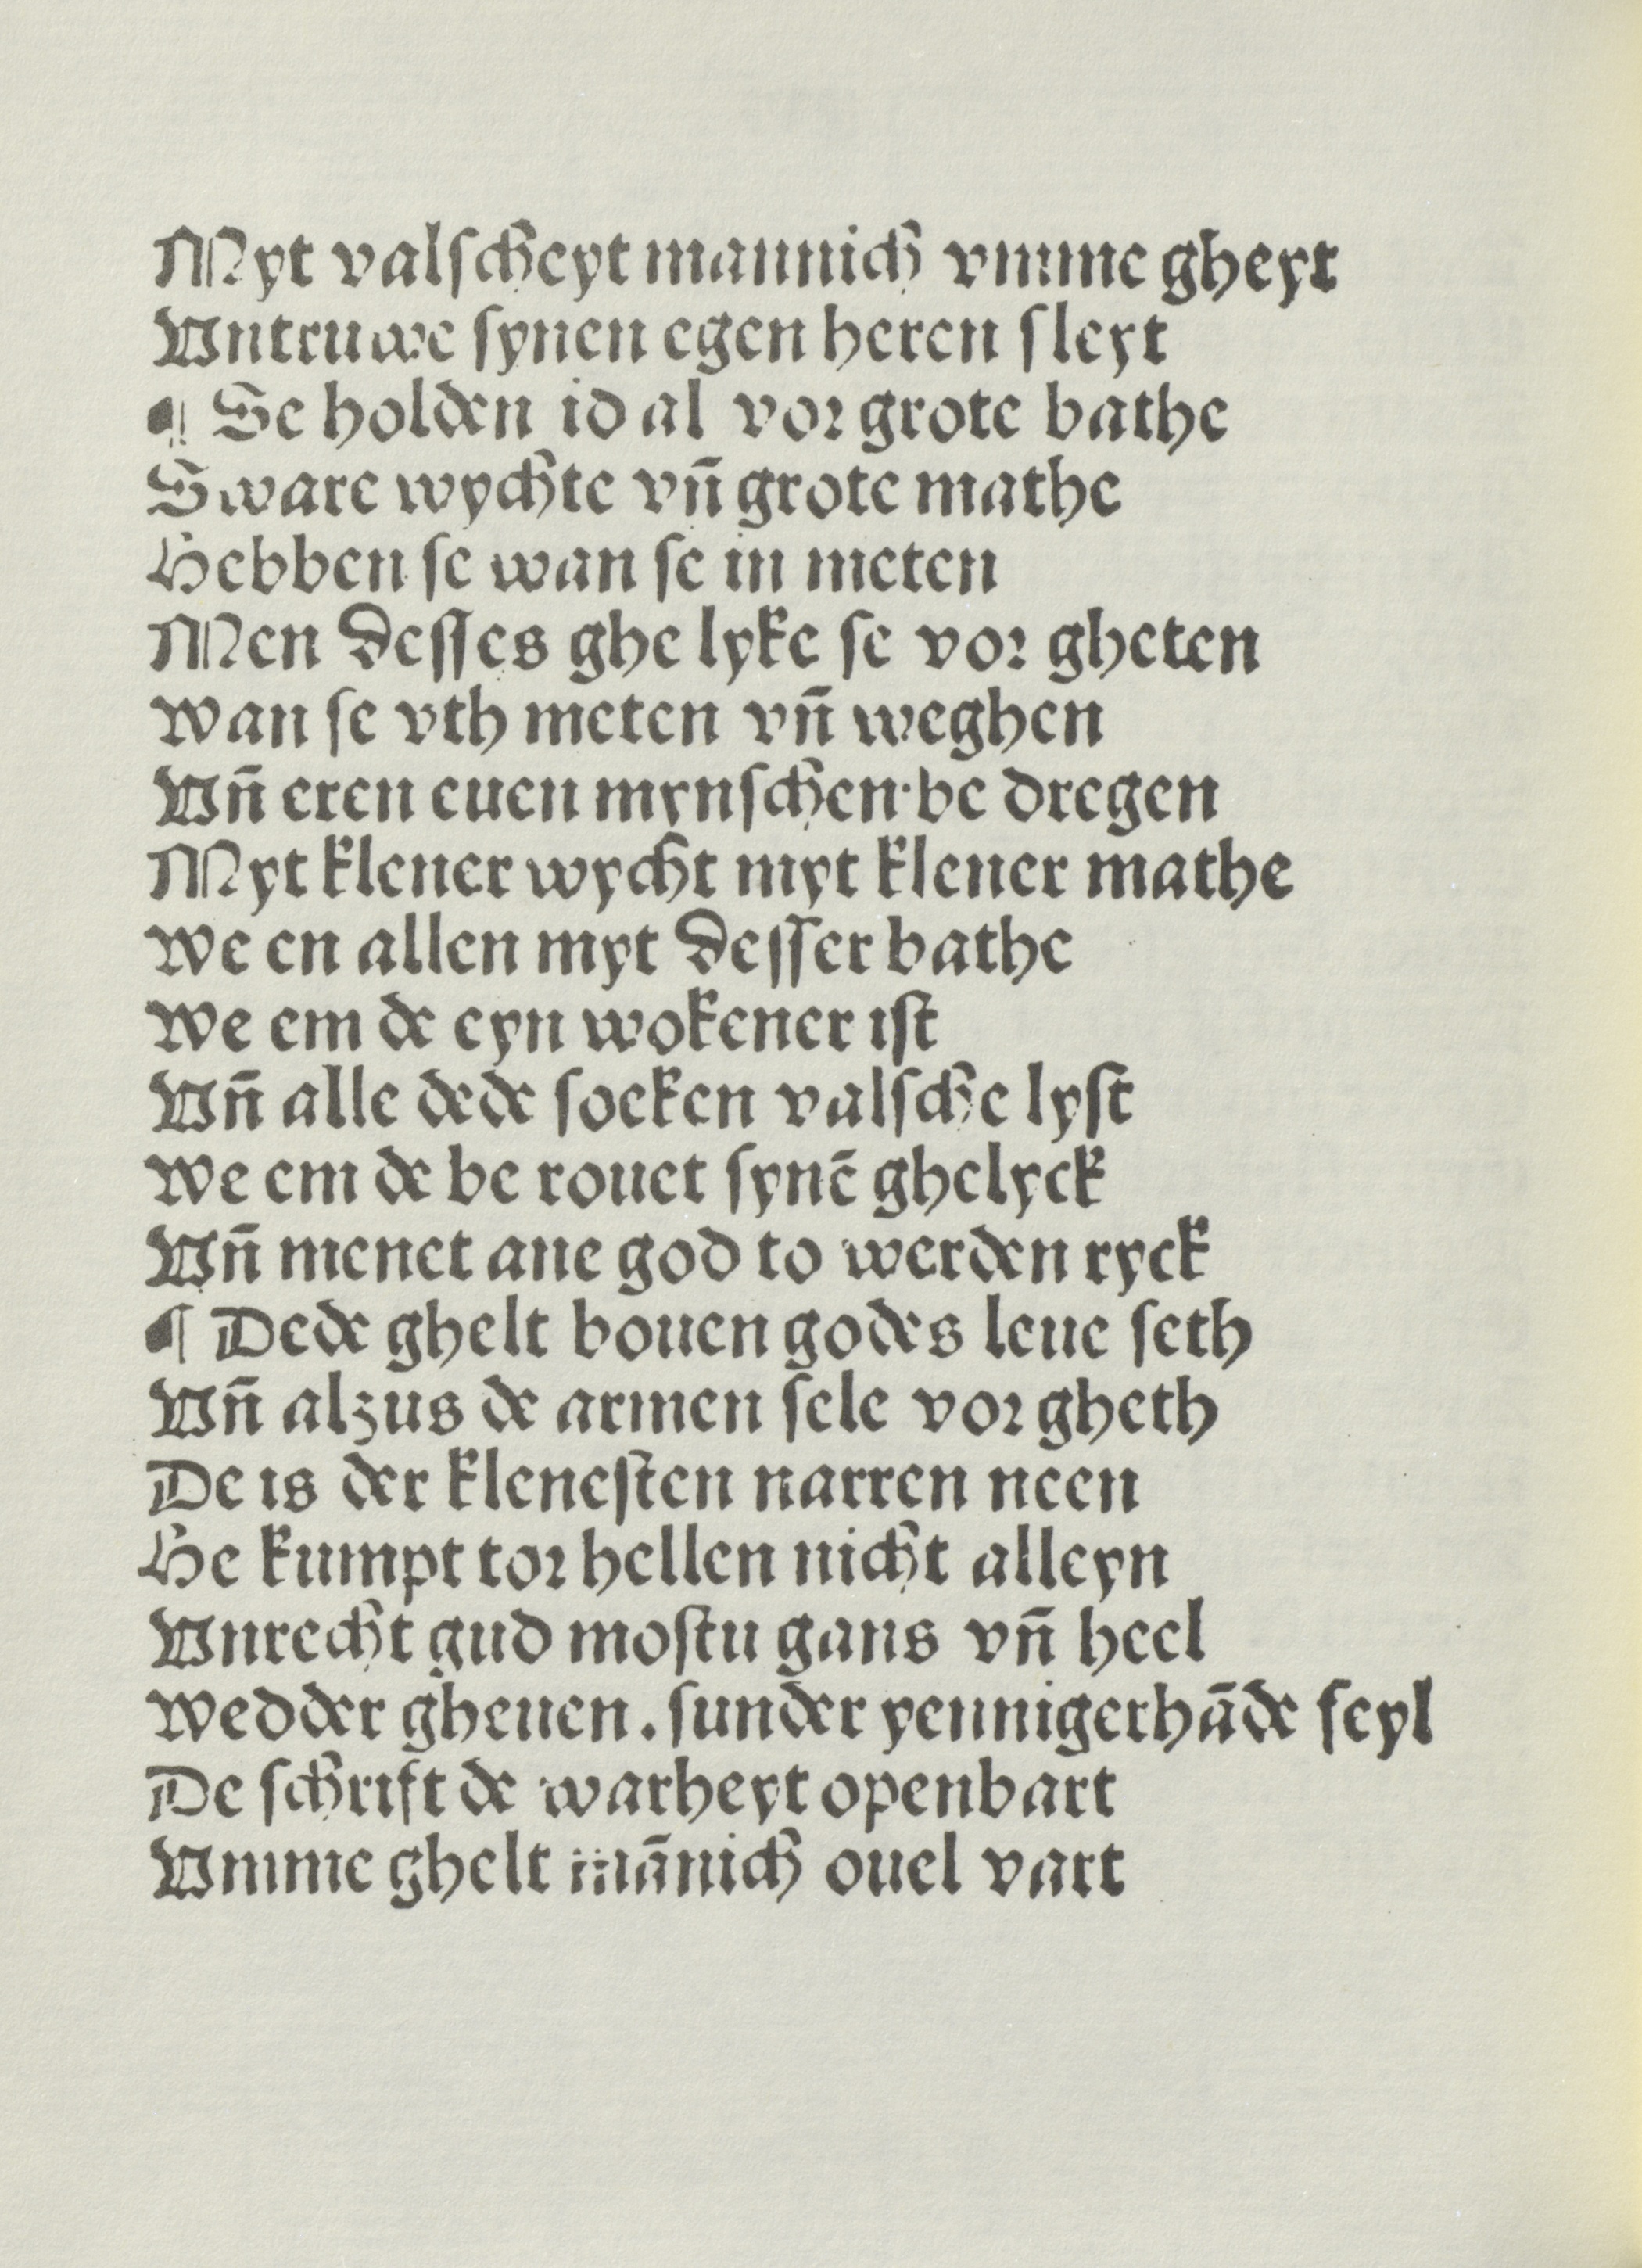 Myt valſcheyt mannich vmme gheyt
Vntruwe ſynen egen heren ſleyt
¶ Se holden id al vor grote bathe
Sware wychte vn̄ grote mathe
Hebben ſe wan ſe in meten
Men deſſes ghe lyke ſe vor gheten
Wan ſe vth meten vn̄ weghen
Vn̄ eren euen mynſchen be dregen
Myt klener wycht myt klener mathe
We en allen myt deſſer bathe
We em de eyn wokener iſt
Vn̄ alle dede ſoeken valſche lyſt
We em de be rouet ſynē ghelyck
Vn̄ menet ane god to werden ryck
¶ Dede ghelt bouen godes leue ſeth
Vn̄ alzus de armen ſele vor gheth
De is der kleneſten narren neen
He kumpt tor hellen nicht alleyn
Vnrecht gud moſtu gans vn̄ heel
Wedder gheuen. ſunder yennigerhāde feyl
De ſchrift de warheyt openbart
Vmme ghelt mānich ouel vart